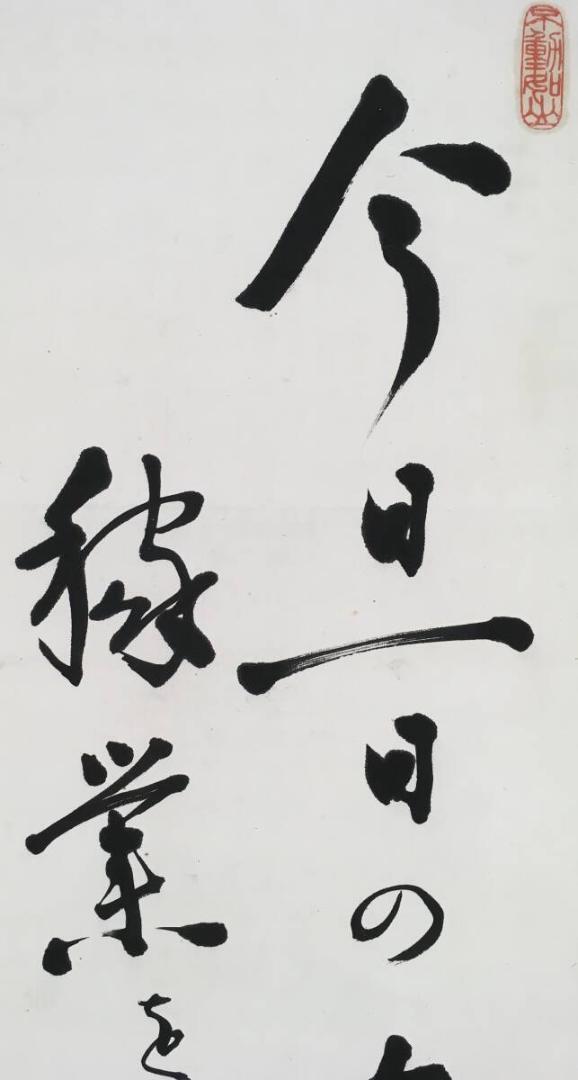 今日一日の
稼業を